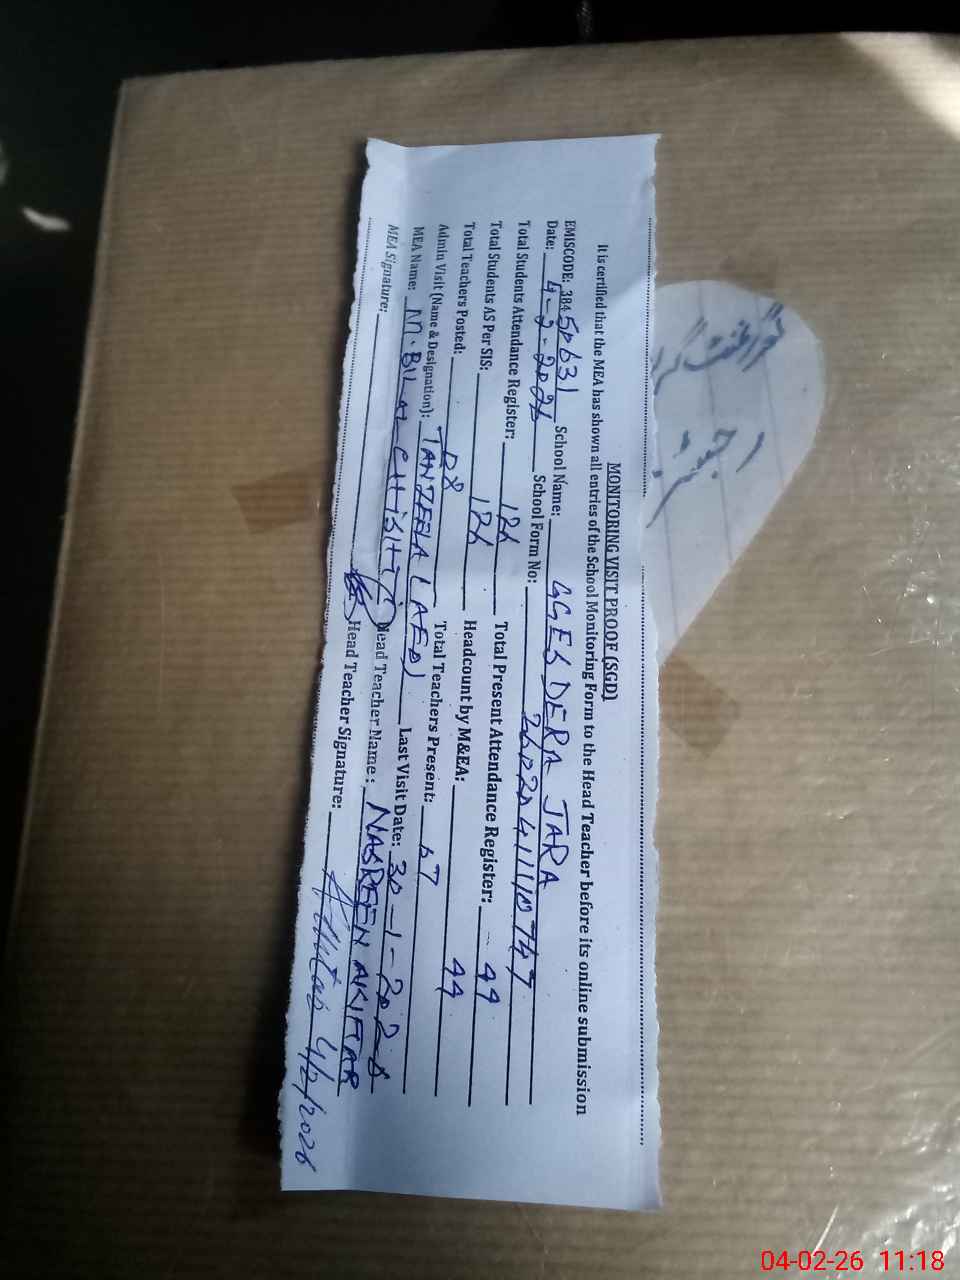 MONITORING VISIT PROOF (SGD)
It is certified that the MEA has shown all entries of the School Monitoring Form to the Head Teacher before its online submission
EMISCODE: 384 50631 School Name: GGES DERA JARA
Date: 4-2-2026 School Form No: 26020411110747
Total Students Attendance Register: 126 Total Present Attendance Register: 44
Total Students AS Per SIS: 126 Headcount by M&EA: 44
Total Teachers Posted: 08 Total Teachers Present: 07
Admin Visit (Name & Designation): TANZEELA (AEO) Last Visit Date: 30-1-2026
MEA Name: M. BILAL CHISHTI Head Teacher Name: NASREEN AKHTAR
MEA Signature: Head Teacher Signature: 4/2/2026
گورنمنٹ گر
رجسٹر
04-02-26 11:18